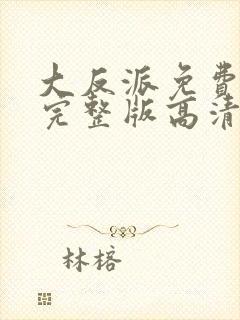 大反派免費
完整版高清
林榕